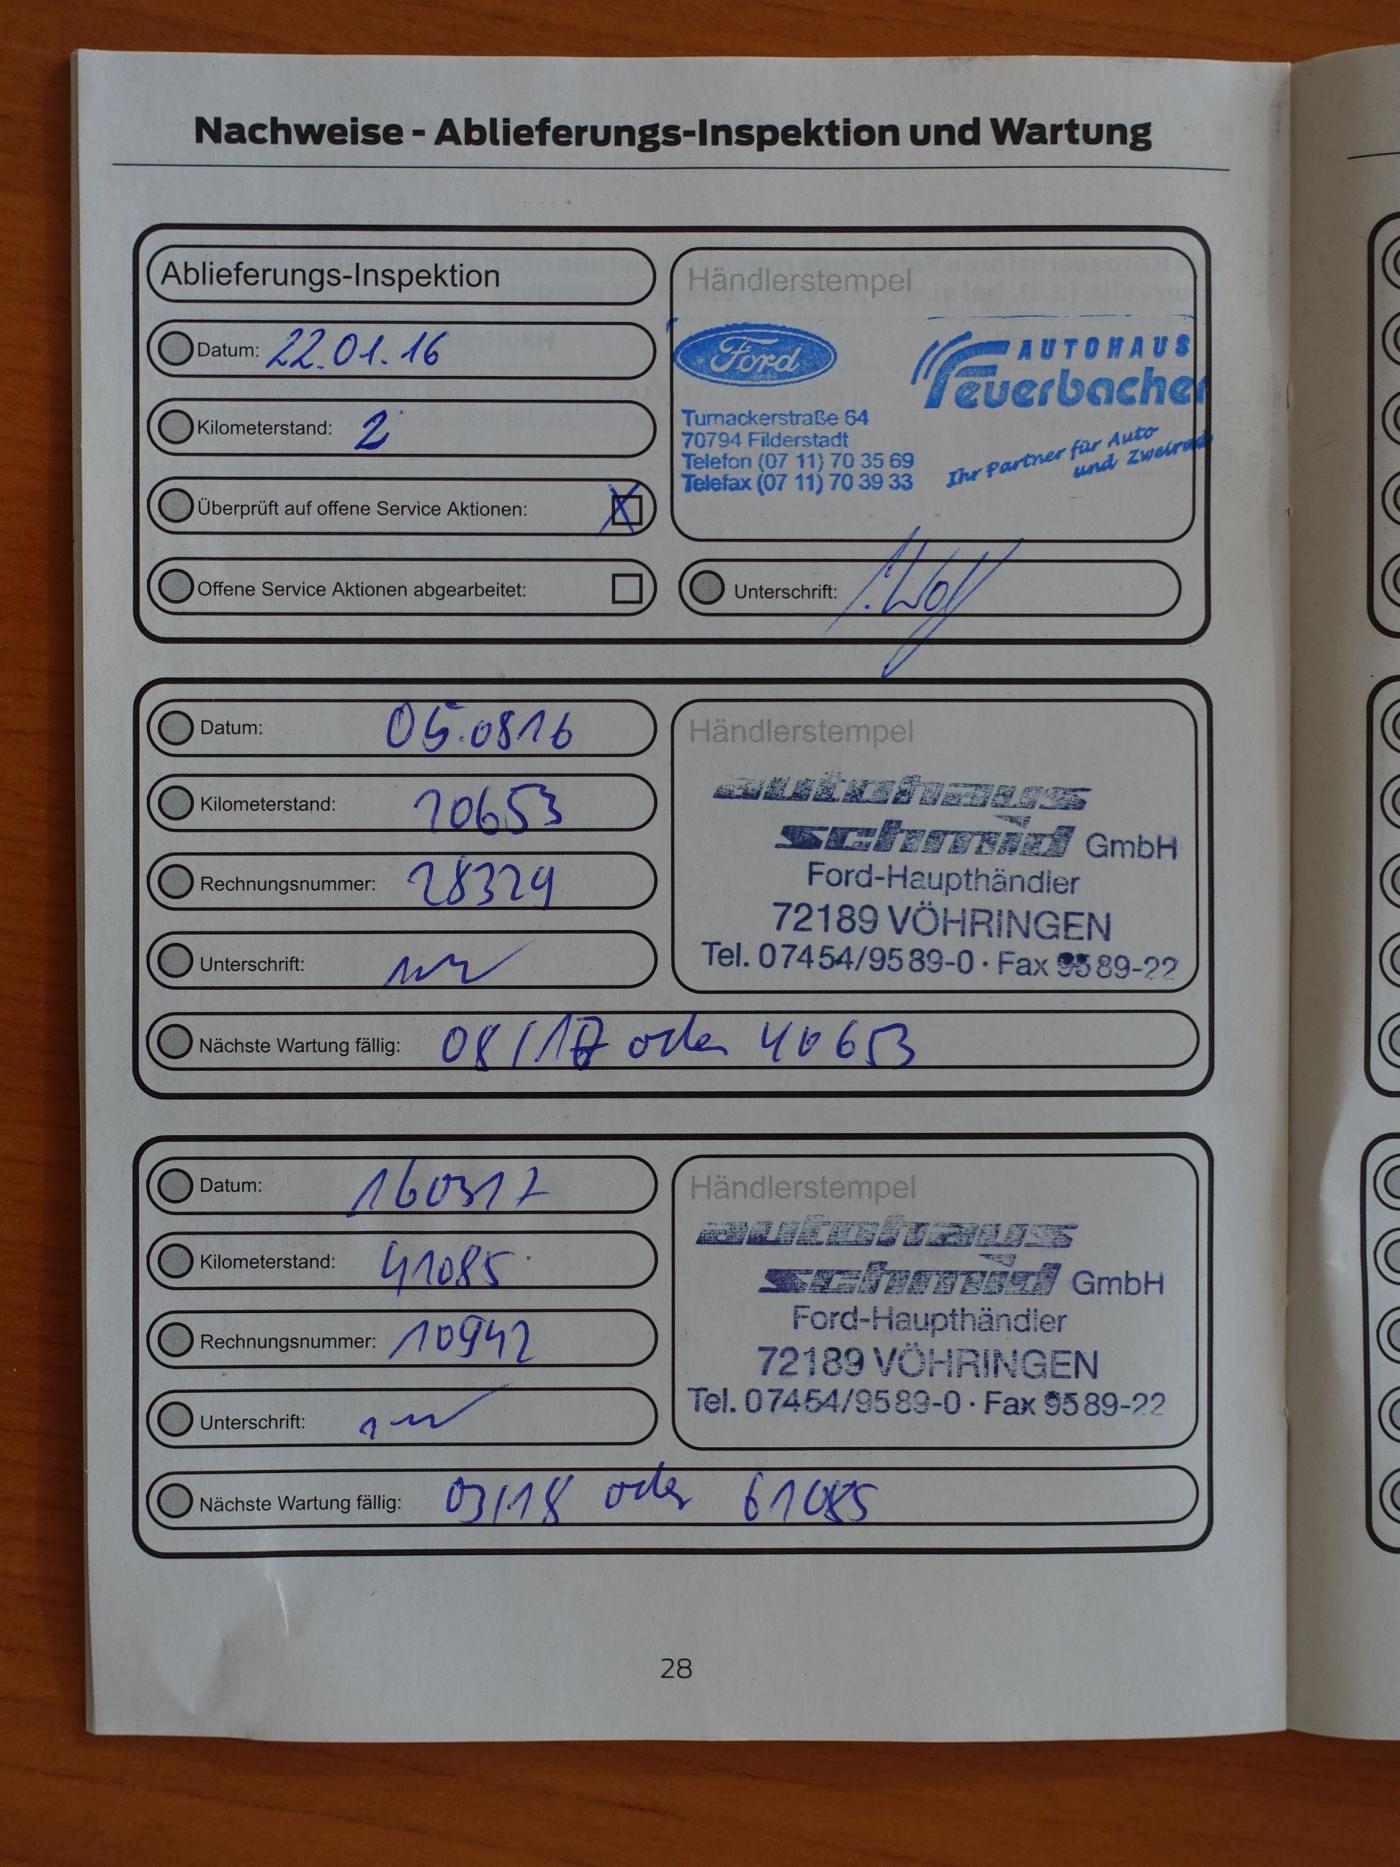 Nachweise - Ablieferungs-Inspektion und Wartung
Ablieferungs-Inspektion
Datum: 22.01.16
Kilometerstand: 2
Überprüft auf offene Service Aktionen: X
Offene Service Aktionen abgearbeitet:
Händlerstempel
Ford
AUTOHAUS
Feuerbacher
Turnackerstraße 64
70794 Filderstadt
Telefon (07 11) 70 35 69
Telefax (07 11) 70 39 33
Ihr Partner für Auto
und Zweirad
Unterschrift:
Datum: 05.0816
Kilometerstand: 10653
Rechnungsnummer: 28329
Unterschrift:
Nächste Wartung fällig: 08/17 oder 40653
Händlerstempel
autohaus
schmid GmbH
Ford-Haupthändler
72189 VÖHRINGEN
Tel. 07454/9589-0 · Fax 9589-22
Datum: 160317
Kilometerstand: 41085
Rechnungsnummer: 10942
Unterschrift:
Nächste Wartung fällig: 03/18 oder 61085
Händlerstempel
autohaus
schmid GmbH
Ford-Haupthändler
72189 VÖHRINGEN
Tel. 07454/9589-0 · Fax 9589-22
28